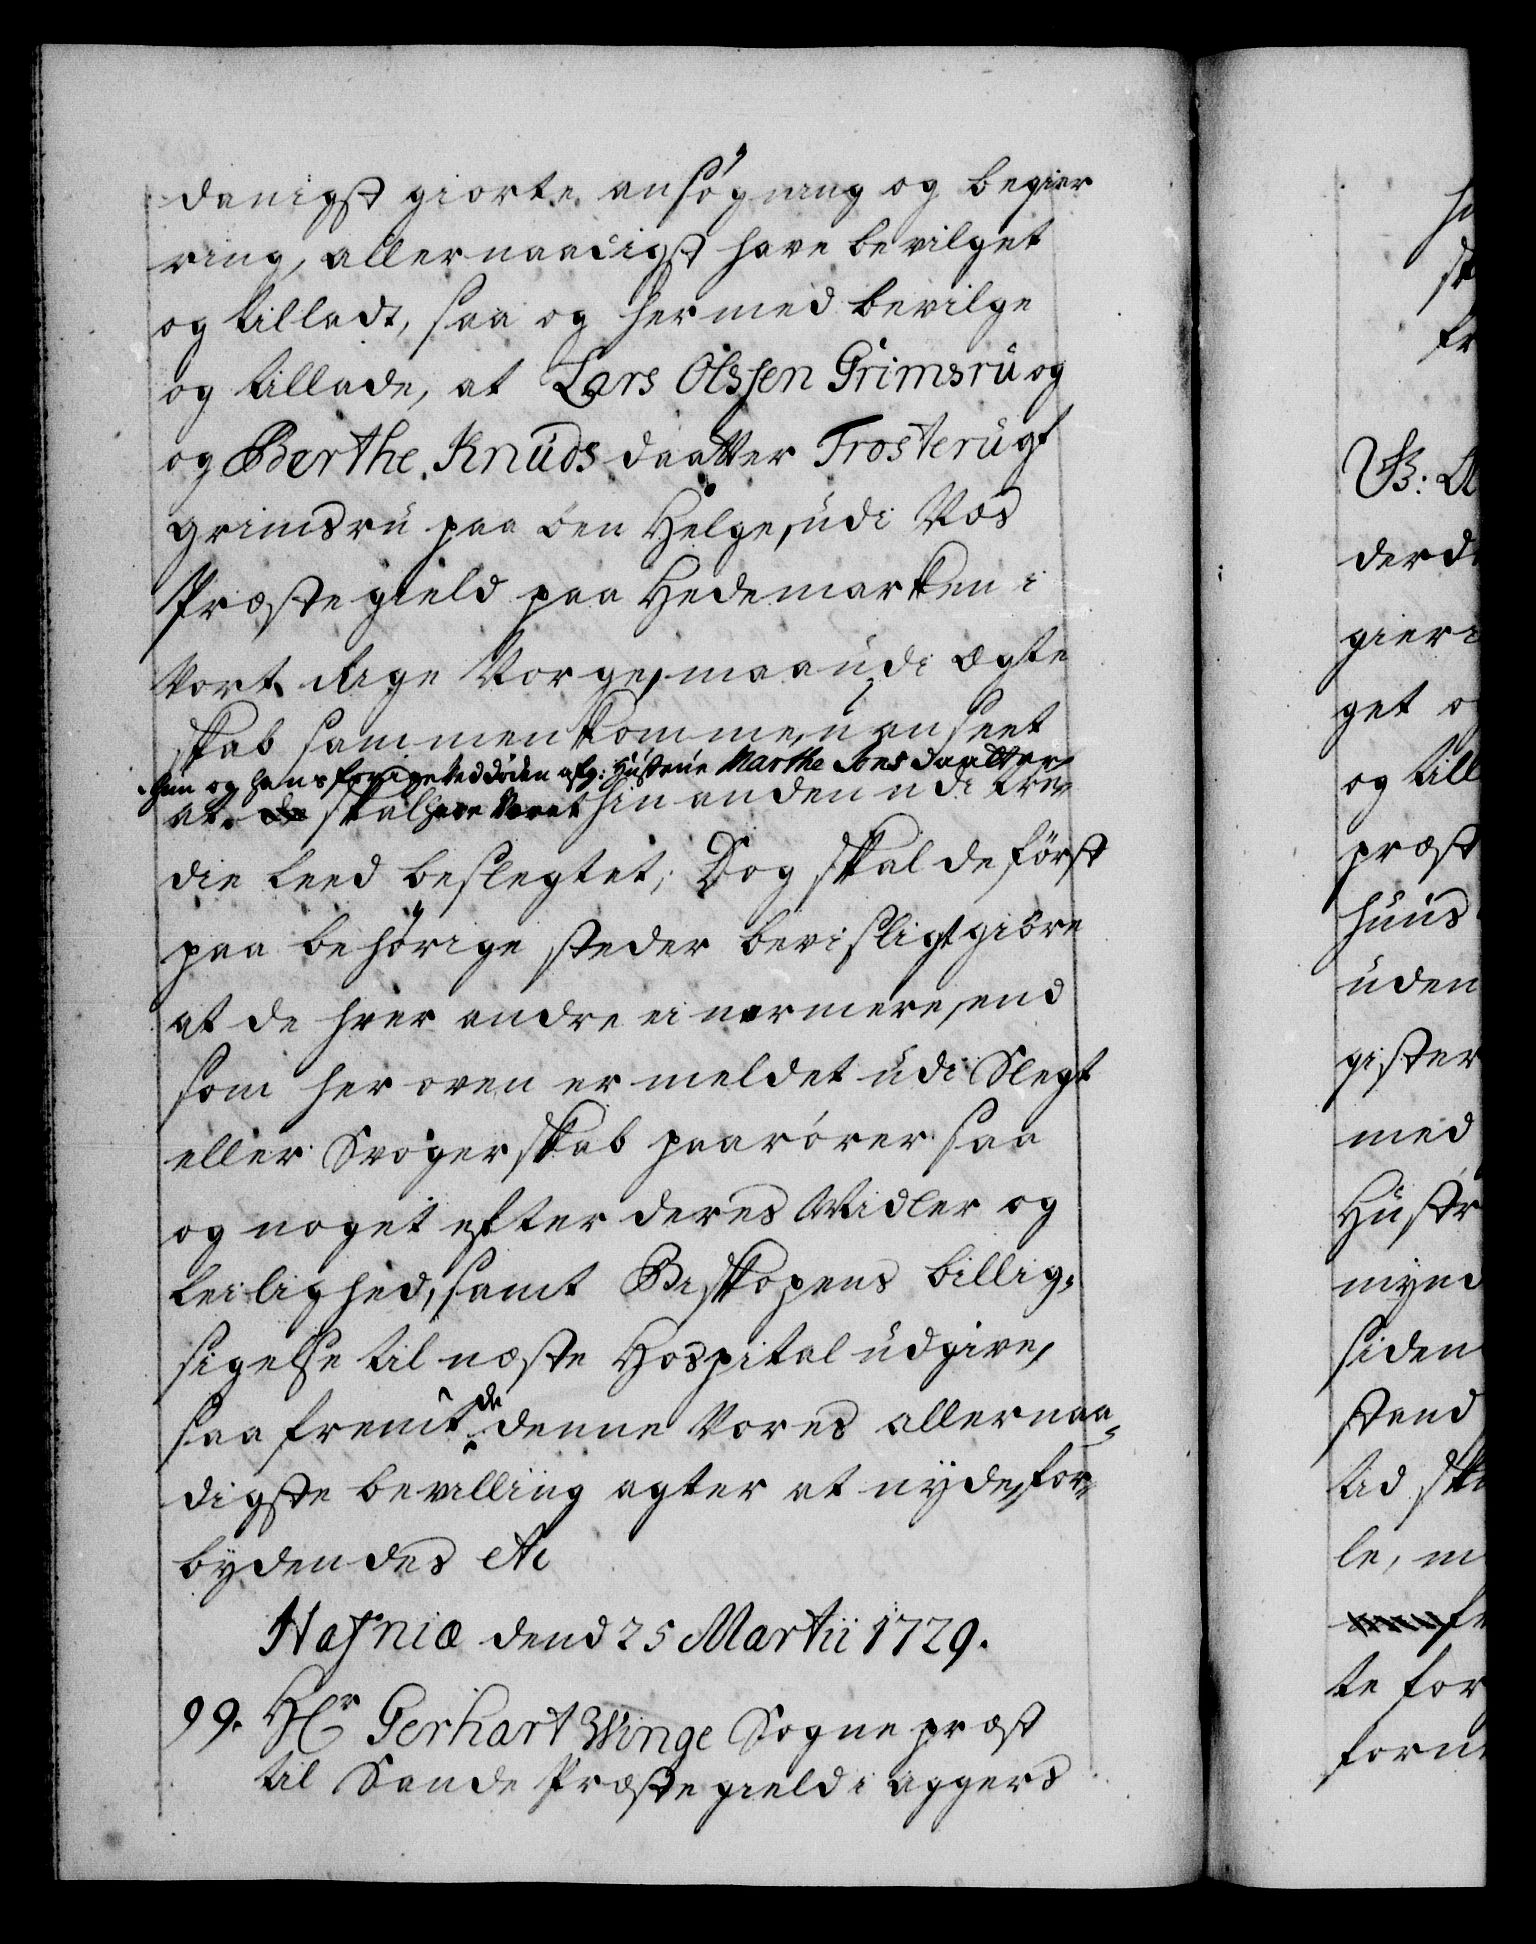 danigst giorte ansøgning og begier
ring, allernaadigst have bevilget
og tilladt, saa og hermed bevilge
og tillade, at Lars Olssen Grimsrü og
og Berthe Knüds daatter Trosterüg
grimsrü paa øen Helge, üdi Nos
Præstegield paa Hedemarken i
Vort Rige Norge, maa üdi ægte
skab sammenkomme, ü anseet
hun og hans forige ved døden afg: Hüstrüe Marthe Jons daatter
at de skal have Været hin anden udi tre
die leed beslegtet; Dog skal de først
paa behörige steder bevisligt giöre
at de hver andre ei nermere, end
som her oven er meldet üdi Slegt
eller Svogerskab paarörer saa
og noget efter deres Midler og
leilighed, samt Biskopens billig-
sigelse til næste Hospital üdgive,
saa fremt de denne Vores allernaa-
digste bevilling agter at nyde, for
bydendes etc
Hafniæ dend 25 Martii 1729.
99. Hr Gerhart Winge Sogne præst
til Sande Præstegield i aggers
W: A
derd
gieri
get o
og till
præst
huus
uden
gister
med
Hüstr
mynd
siden
stand
tid sk
le, m
te for